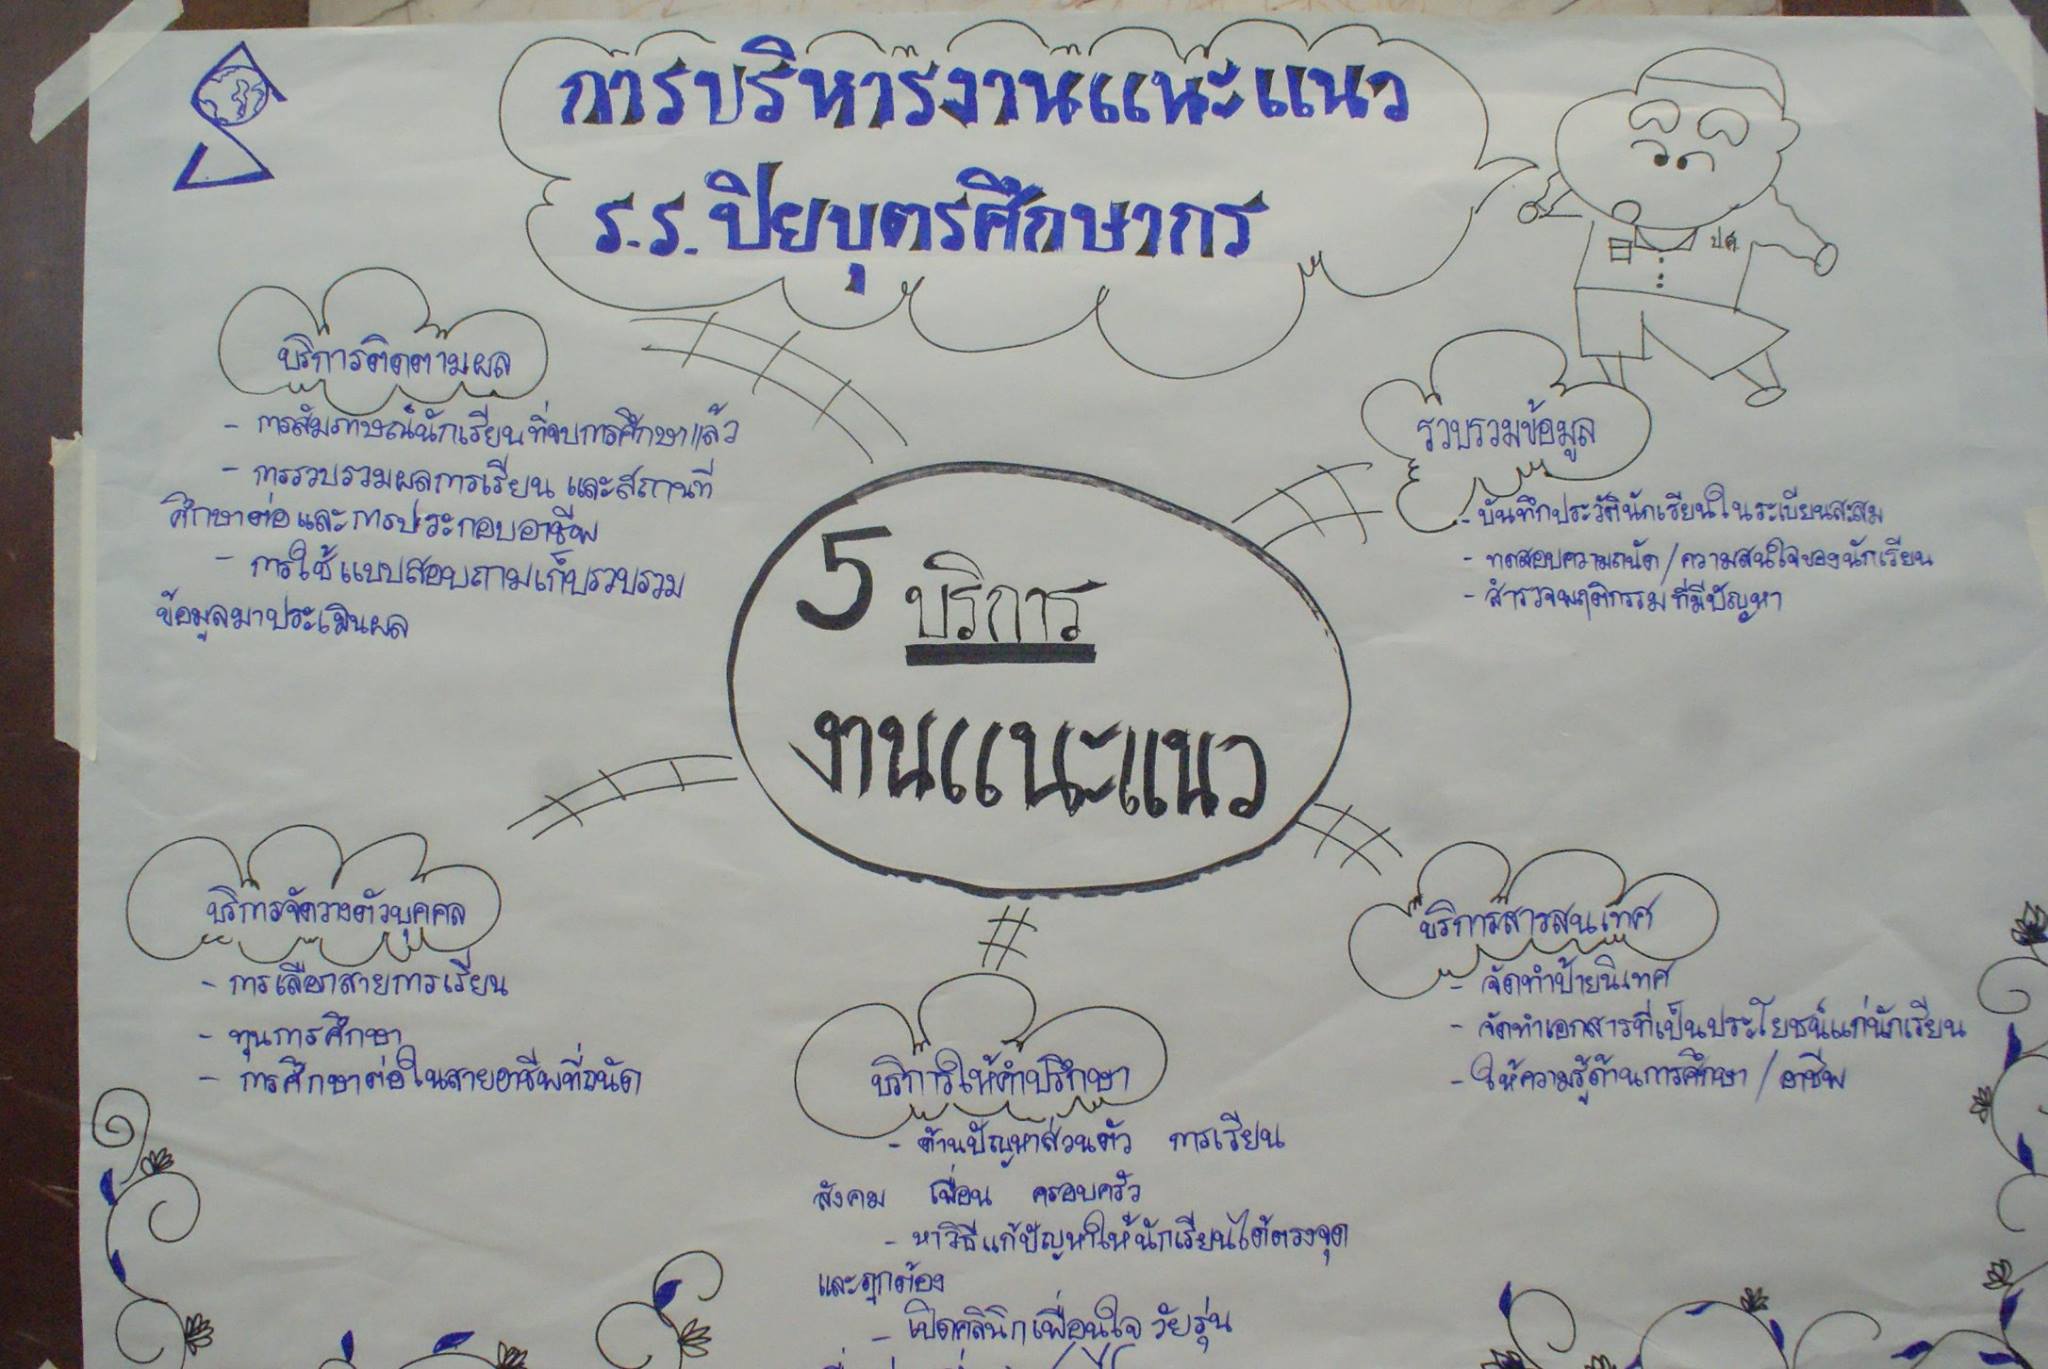 การบริหารงานแนะแนว
ร.ร. ปิยบุตรศึกษากร
ปศ.
บริการติดตามผล
- การสัมภาษณ์นักเรียนที่จบการศึกษาแล้ว
- การรวบรวมผลการเรียน และสถานที่
ศึกษาต่อ และการประกอบอาชีพ
- การใช้แบบสอบถามเก็บรวบรวม
ข้อมูลมาประเมินผล
รวบรวมข้อมูล
- บันทึกประวัตินักเรียนในระเบียนสะสม
- ทดสอบความถนัด / ความสนใจของนักเรียน
- สำรวจพฤติกรรมที่มีปัญหา
5 บริการ
งานแนะแนว
บริการจัดวางตัวบุคคล
- การเลือกสายการเรียน
- ทุนการศึกษา
- การศึกษาต่อในสายอาชีพที่ถนัด
บริการให้คำปรึกษา
- ด้านปัญหาส่วนตัว การเรียน
สังคม เพื่อน ครอบครัว
- หาวิธีแก้ปัญหาให้นักเรียนได้ตรงจุด
และถูกต้อง
- เปิดคลินิกเพื่อนใจ วัยรุ่น
บริการสารสนเทศ
- จัดทำป้ายนิเทศ
- จัดทำเอกสารที่เป็นประโยชน์แก่นักเรียน
- ให้ความรู้ด้านการศึกษา / อาชีพ